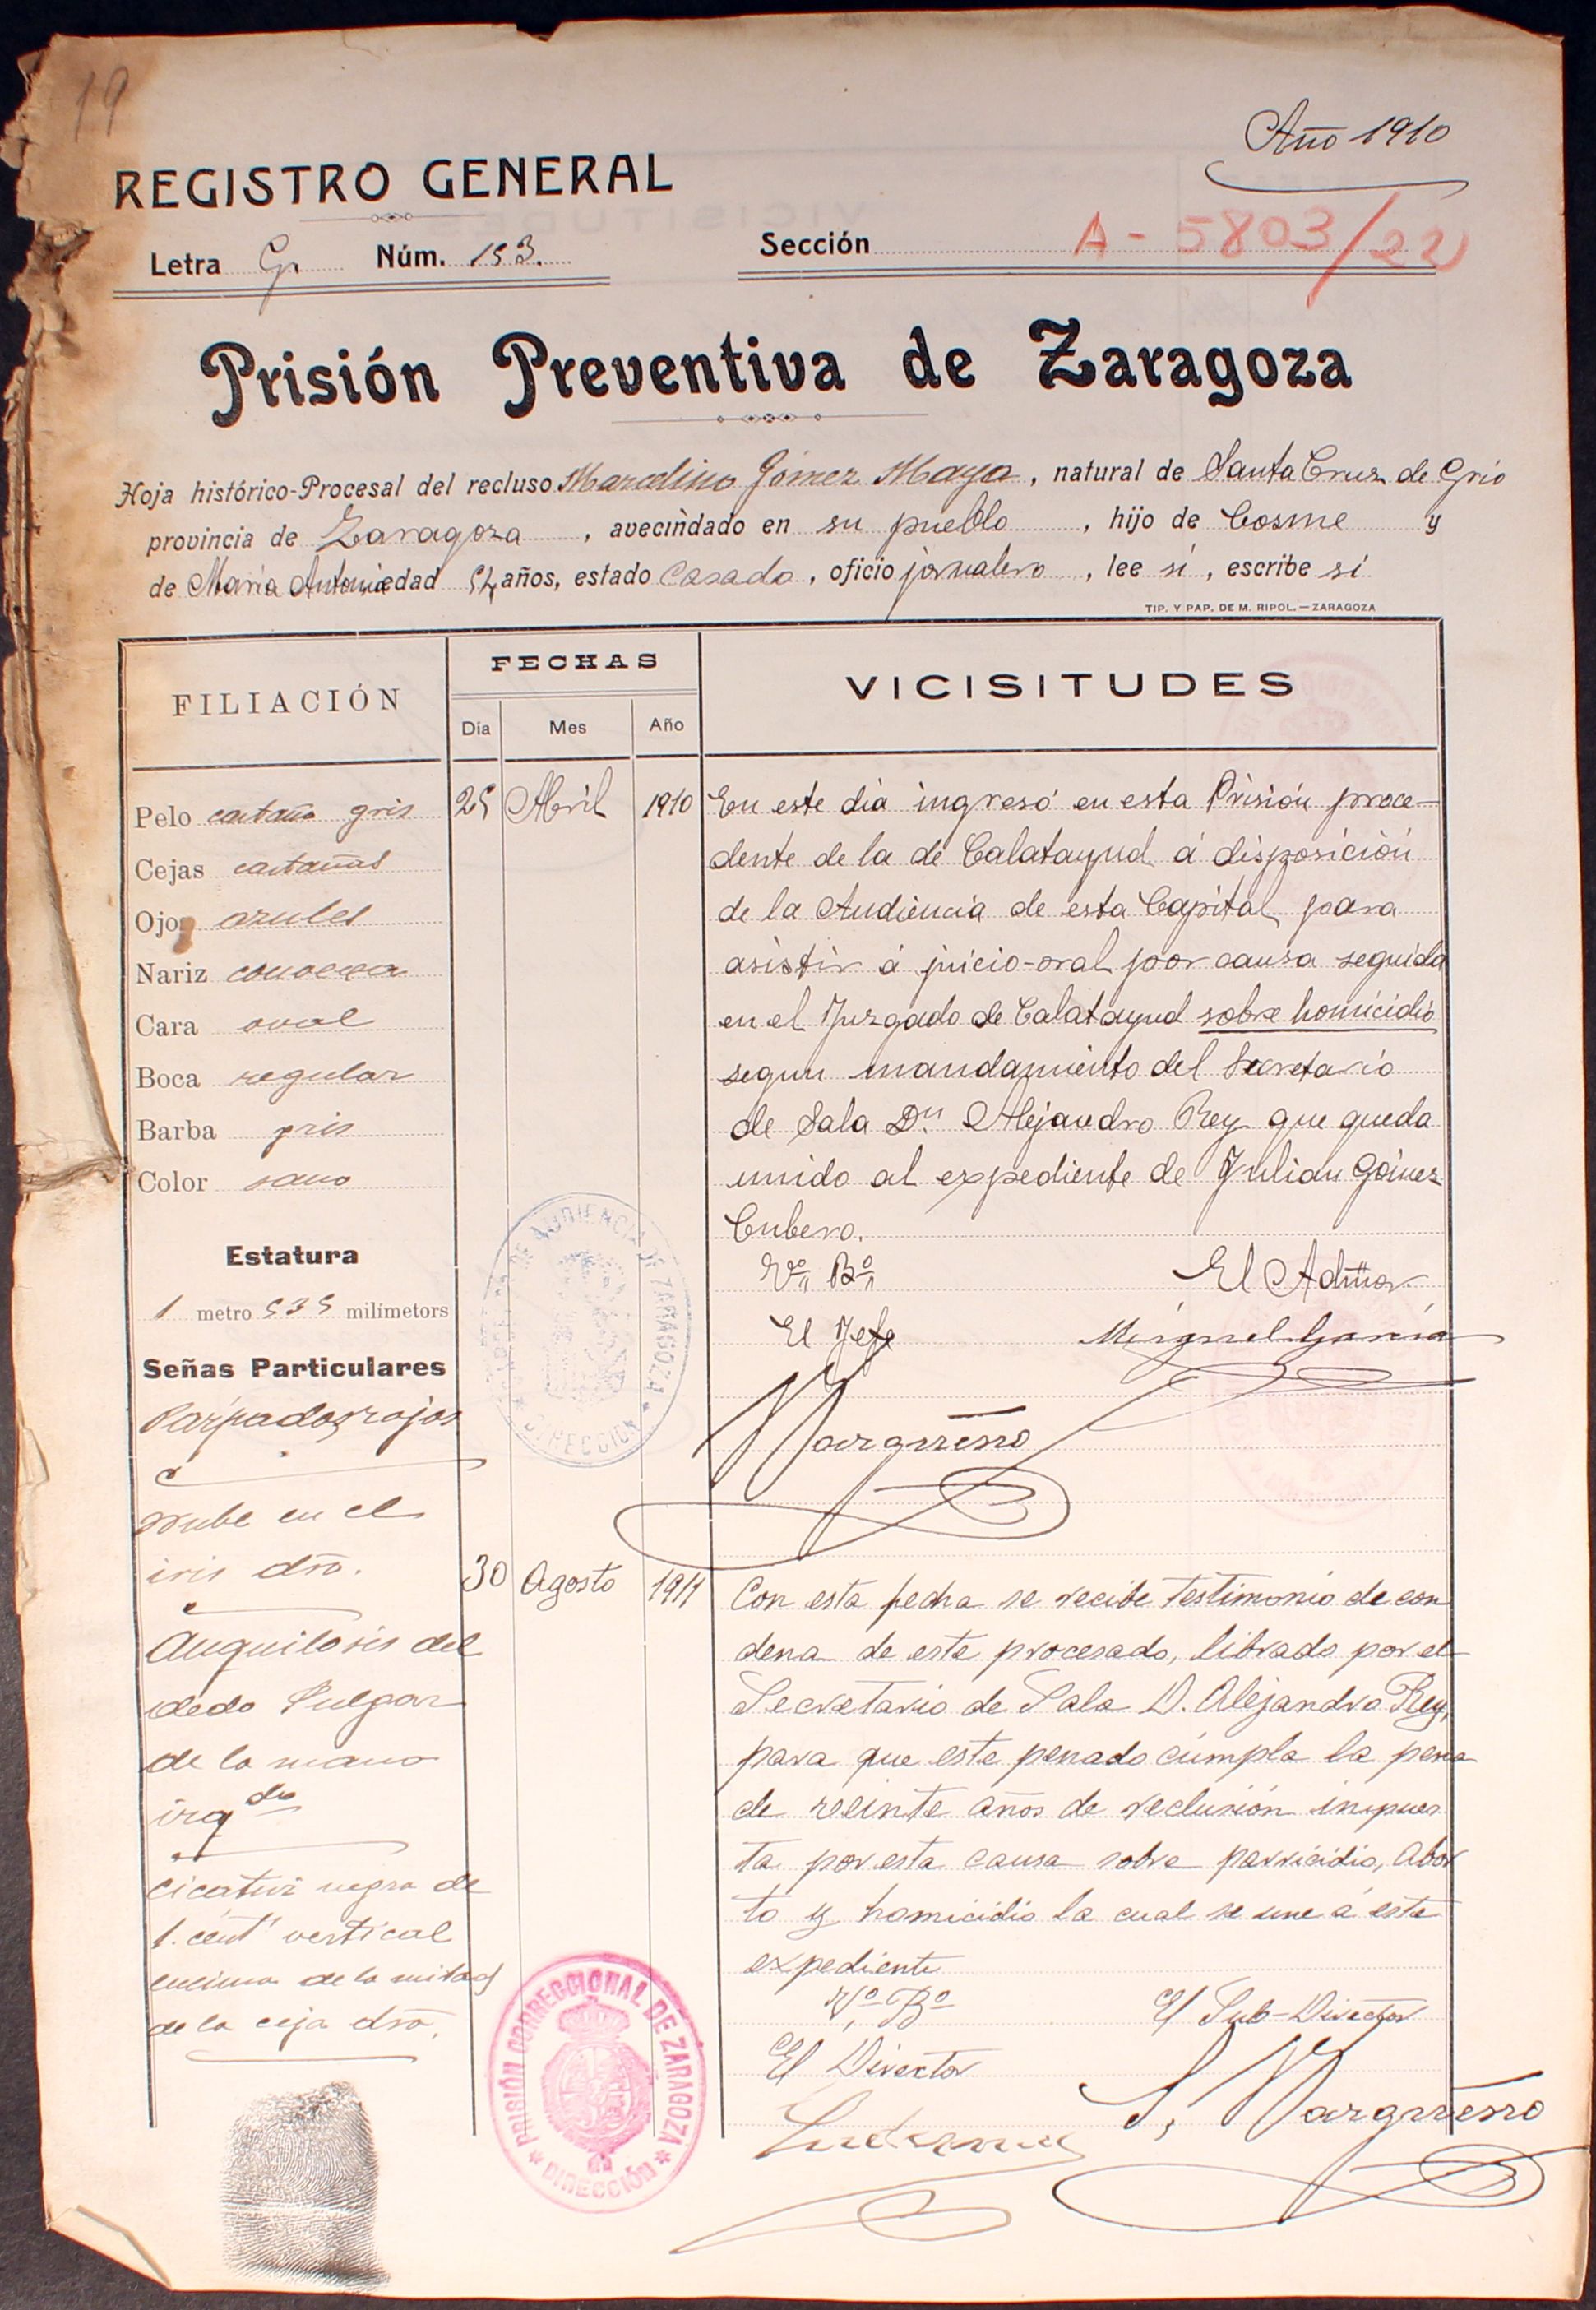 19
Año 1910
REGISTRO GENERAL
Letra G. Núm. 153.
Sección A-5803/22
Prisión Preventiva de Zaragoza
Hoja histórico-Procesal del recluso Marcelino Gómez Maya, natural de Santa Cruz de Grio
provincia de Zaragoza, avecindado en su pueblo, hijo de Cosme y
de María Antonia edad años, estado Casado, oficio jornalero, lee sí, escribe sí
TIP. Y PAP. DE M. RIPOL.—ZARAGOZA
FILIACIÓN
FECHAS
Día Mes Año
VICISITUDES
Pelo castaño gris
Cejas castañas
Ojos azules
Nariz convexa
Cara oval
Boca regular
Barba gris
Color sano
Estatura
1 metro 535 milímetors
Señas Particulares
Párpados rojos
nube en el
iris dro.
Anquilosis del
dedo Pulgar
de la mano
izqda
cicatriz negra de
1. cent vertical
encima de la mitad
de la ceja dra.
25 Abril 1910
En este dia ingresó en esta Prisión proce-
dente de la de Calatayud á disposición
de la Audiencia de esta Capital para
asistir á juicio-oral por causa seguida
en el Juzgado de Calatayud sobre homicidio
segun mandamiento del Secretario
de Sala Dn. Alejandro Rey que queda
unido al expediente de Julian Gómez
Cubero.
Vº Bº El Admor
El Jefe Miguel Garcia
DE AUDIENCIA DE ZARAGOZA
DIRECCION
30 Agosto 1911
Con esta fecha se recibe testimonio de con
dena de este procesado, librado por el
Secretario de Sala D. Alejandro Rey,
para que este penado cúmpla la pena
de veinte años de reclusión impues
ta por esta causa sobre parricidio, abor
to y homicidio la cual se une á este
expediente
Vº Bº El Sub-Director
El Director
PRISIÓN CORRECCIONAL DE ZARAGOZA
DIRECCIÓN